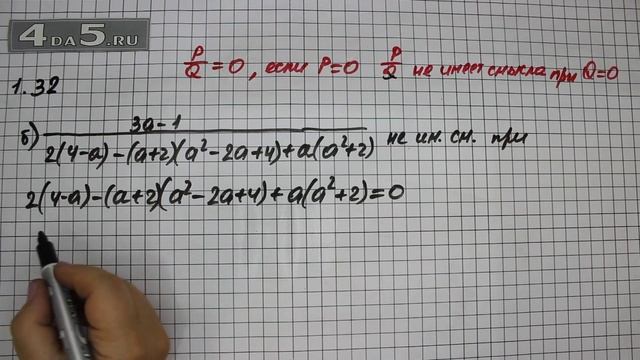 4DA5.RU
P/Q = 0, если P=0 P/Q не имеет смысла при Q=0
1.32
б) (3a-1)/(2(4-a)-(a+2)(a²-2a+4)+a(a²+2)) не им. см. при
2(4-a)-(a+2)(a²-2a+4)+a(a²+2)=0